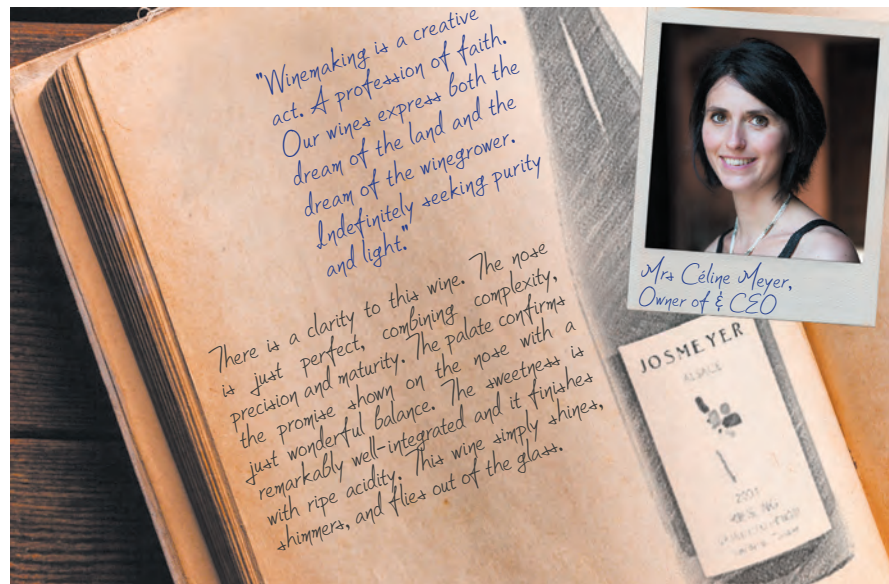 "Winemaking is a creative
act. A profession of faith.
Our wines express both the
dream of the land and the
dream of the winegrower.
Indefinitely seeking purity
and light."
There is a clarity to this wine. The nose
is just perfect, combining complexity,
precision and maturity. The palate confirms
the promise shown on the nose with a
just wonderful balance. The sweetness is
remarkably well-integrated and it finishes
with ripe acidity. This wine simply shines,
shimmers, and flies out of the glass.
Mrs Céline Meyer,
Owner of & CEO
JOSMEYER
ALSACE
RIESLING